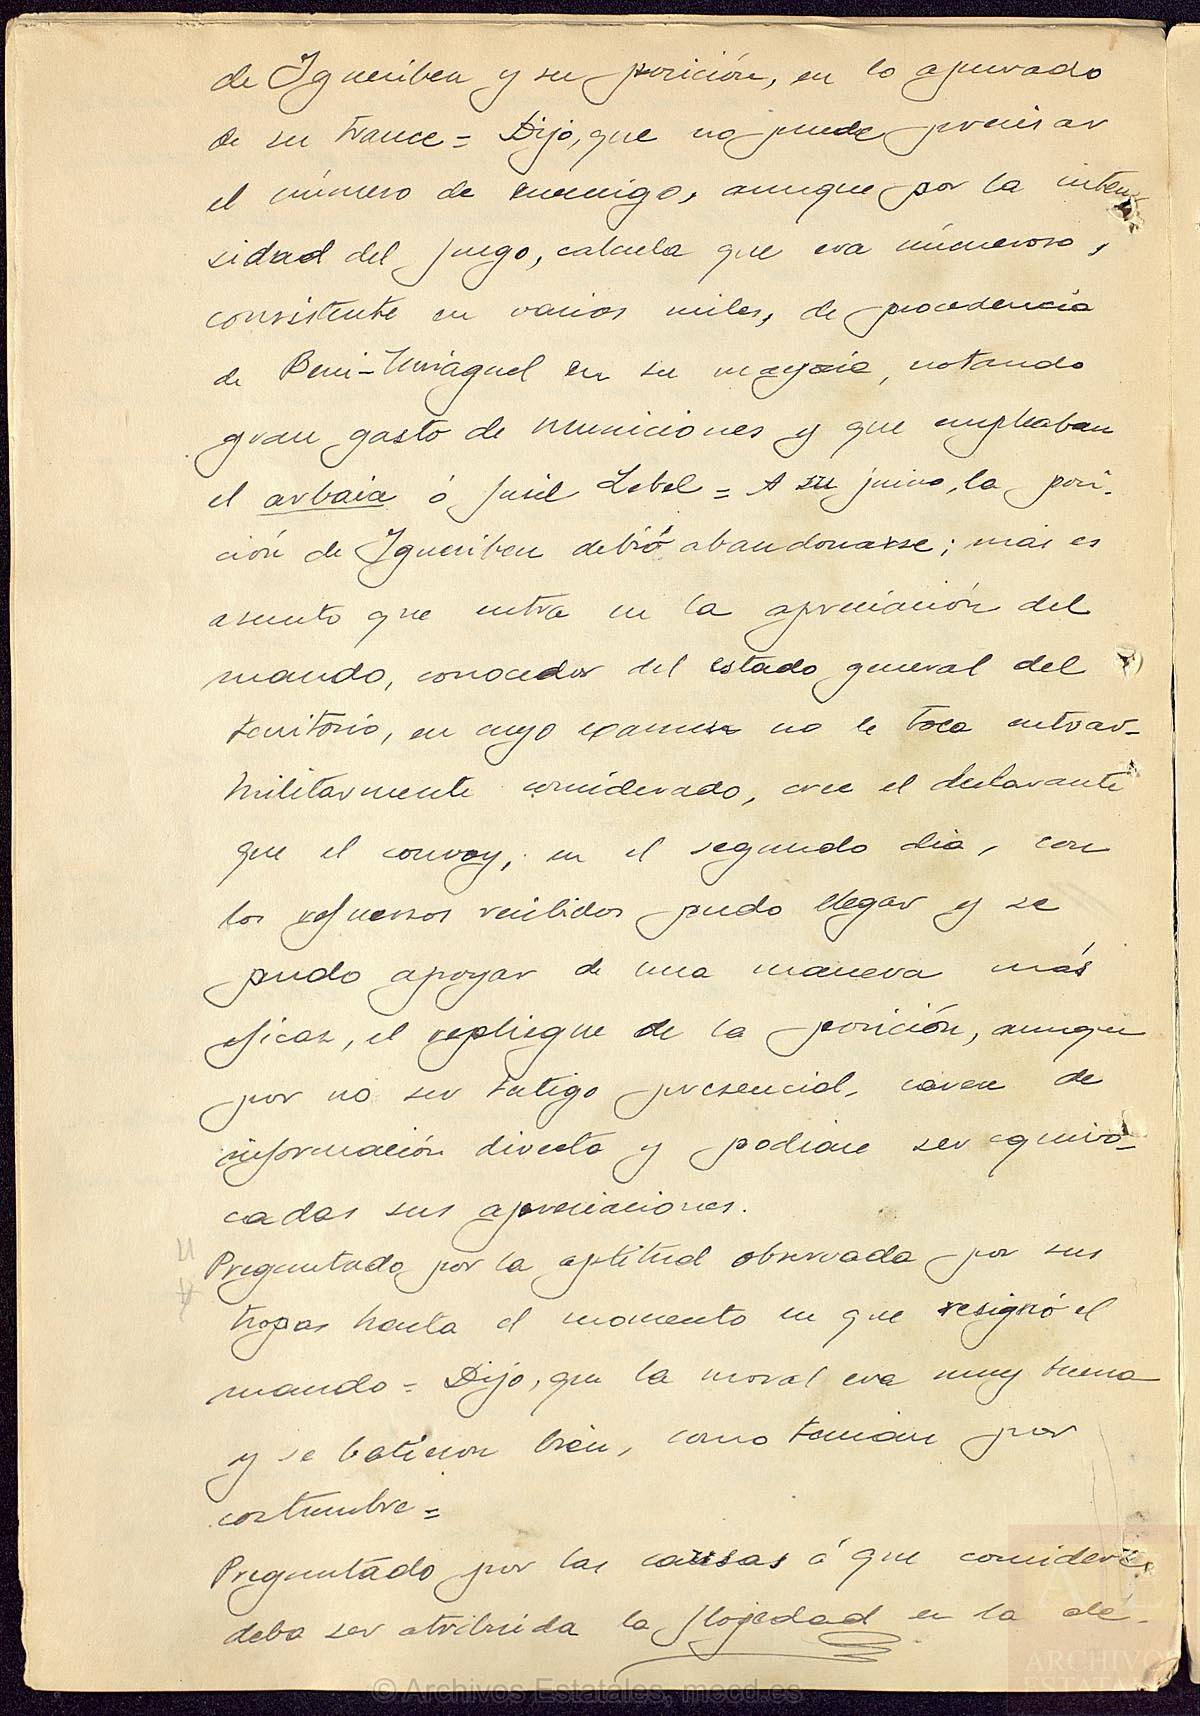 de Igueriben y su posición, en lo apurado
de su trance = Dijo, que no puede precisar
el número de enemigo, aunque por la inten-
sidad del fuego, calcula que era numeroso,
consistente en varios miles, de procedencia
de Beni-Urriaguel en su mayoría, notando
gran gasto de municiones y que empleaban
el arbaia ó fusil Lebel = A su juicio, la posi-
ción de Igueriben debió abandonarse; mas es
asunto que entra en la apreciación del
mando, conocedor del estado general del
territorio, en cuyo examen no le toca entrar-
militarmente considerado, cree el declarante
que el convoy, en el segundo dia, con
los refuerzos recibidos pudo llegar y se
pudo apoyar de una manera más
eficaz, el repliegue de la posición, aunque
por no ser testigo presencial, carece de
información directa y podian ser equivo-
cadas sus apreciaciones.
Preguntado por la aptitud observada por sus
tropas hasta el momento en que resignó el
mando = Dijo, que la moral era muy buena
y se batieron bien, como tenian por
costumbre =
Preguntado por las causas á que considere
deba ser atribuida la flojedad en la de-
© Archivos Estatales, mecd.es
ARCHIVOS
ESTATA